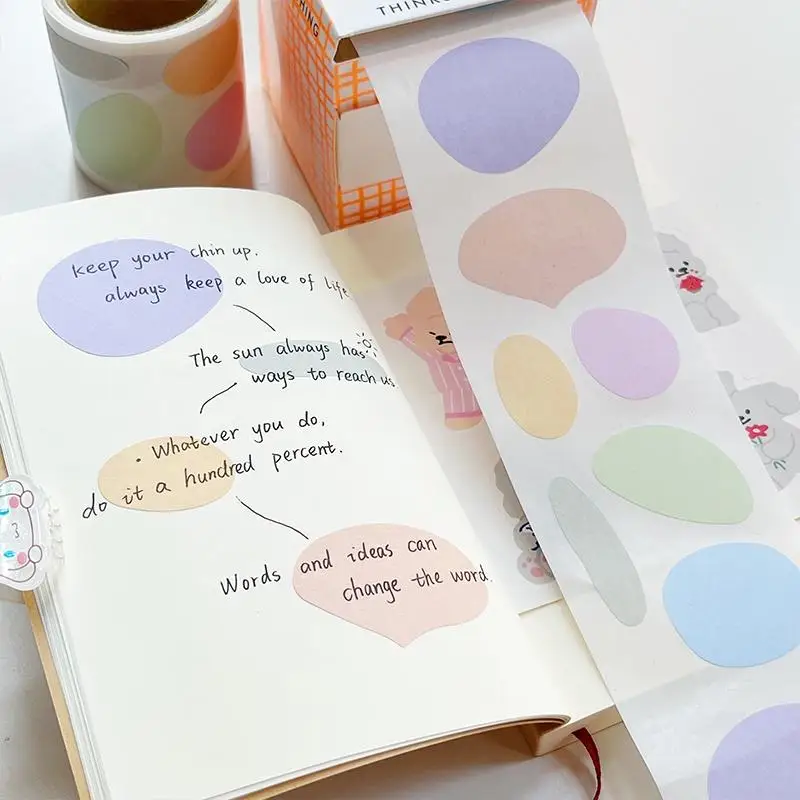 THING
keep your chin up.
always keep a love of life
The sun always has
ways to reach us
· Whatever you do,
do it a hundred percent.
Words and ideas can
change the word.
3